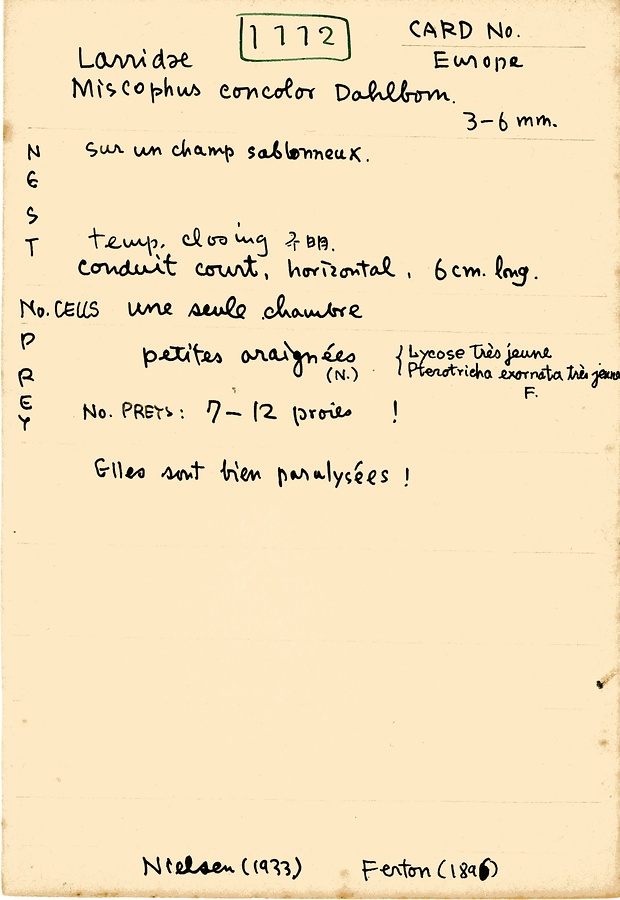 1772 CARD No.
Larridae Europe
Miscophus concolor Dahlbom.
3-6 mm.
NEST sur un champ sablonneux.
temp. closing 不明.
conduit court, horizontal, 6 cm. long.
No. CELLS une seule chambre
PREY petites araignées (N.) { Lycose très jeune
Pterotricha exornata très jeune
F.
No. PREYS: 7-12 proies !
Elles sont bien paralysées !
Nielsen (1933) Ferton (1896)